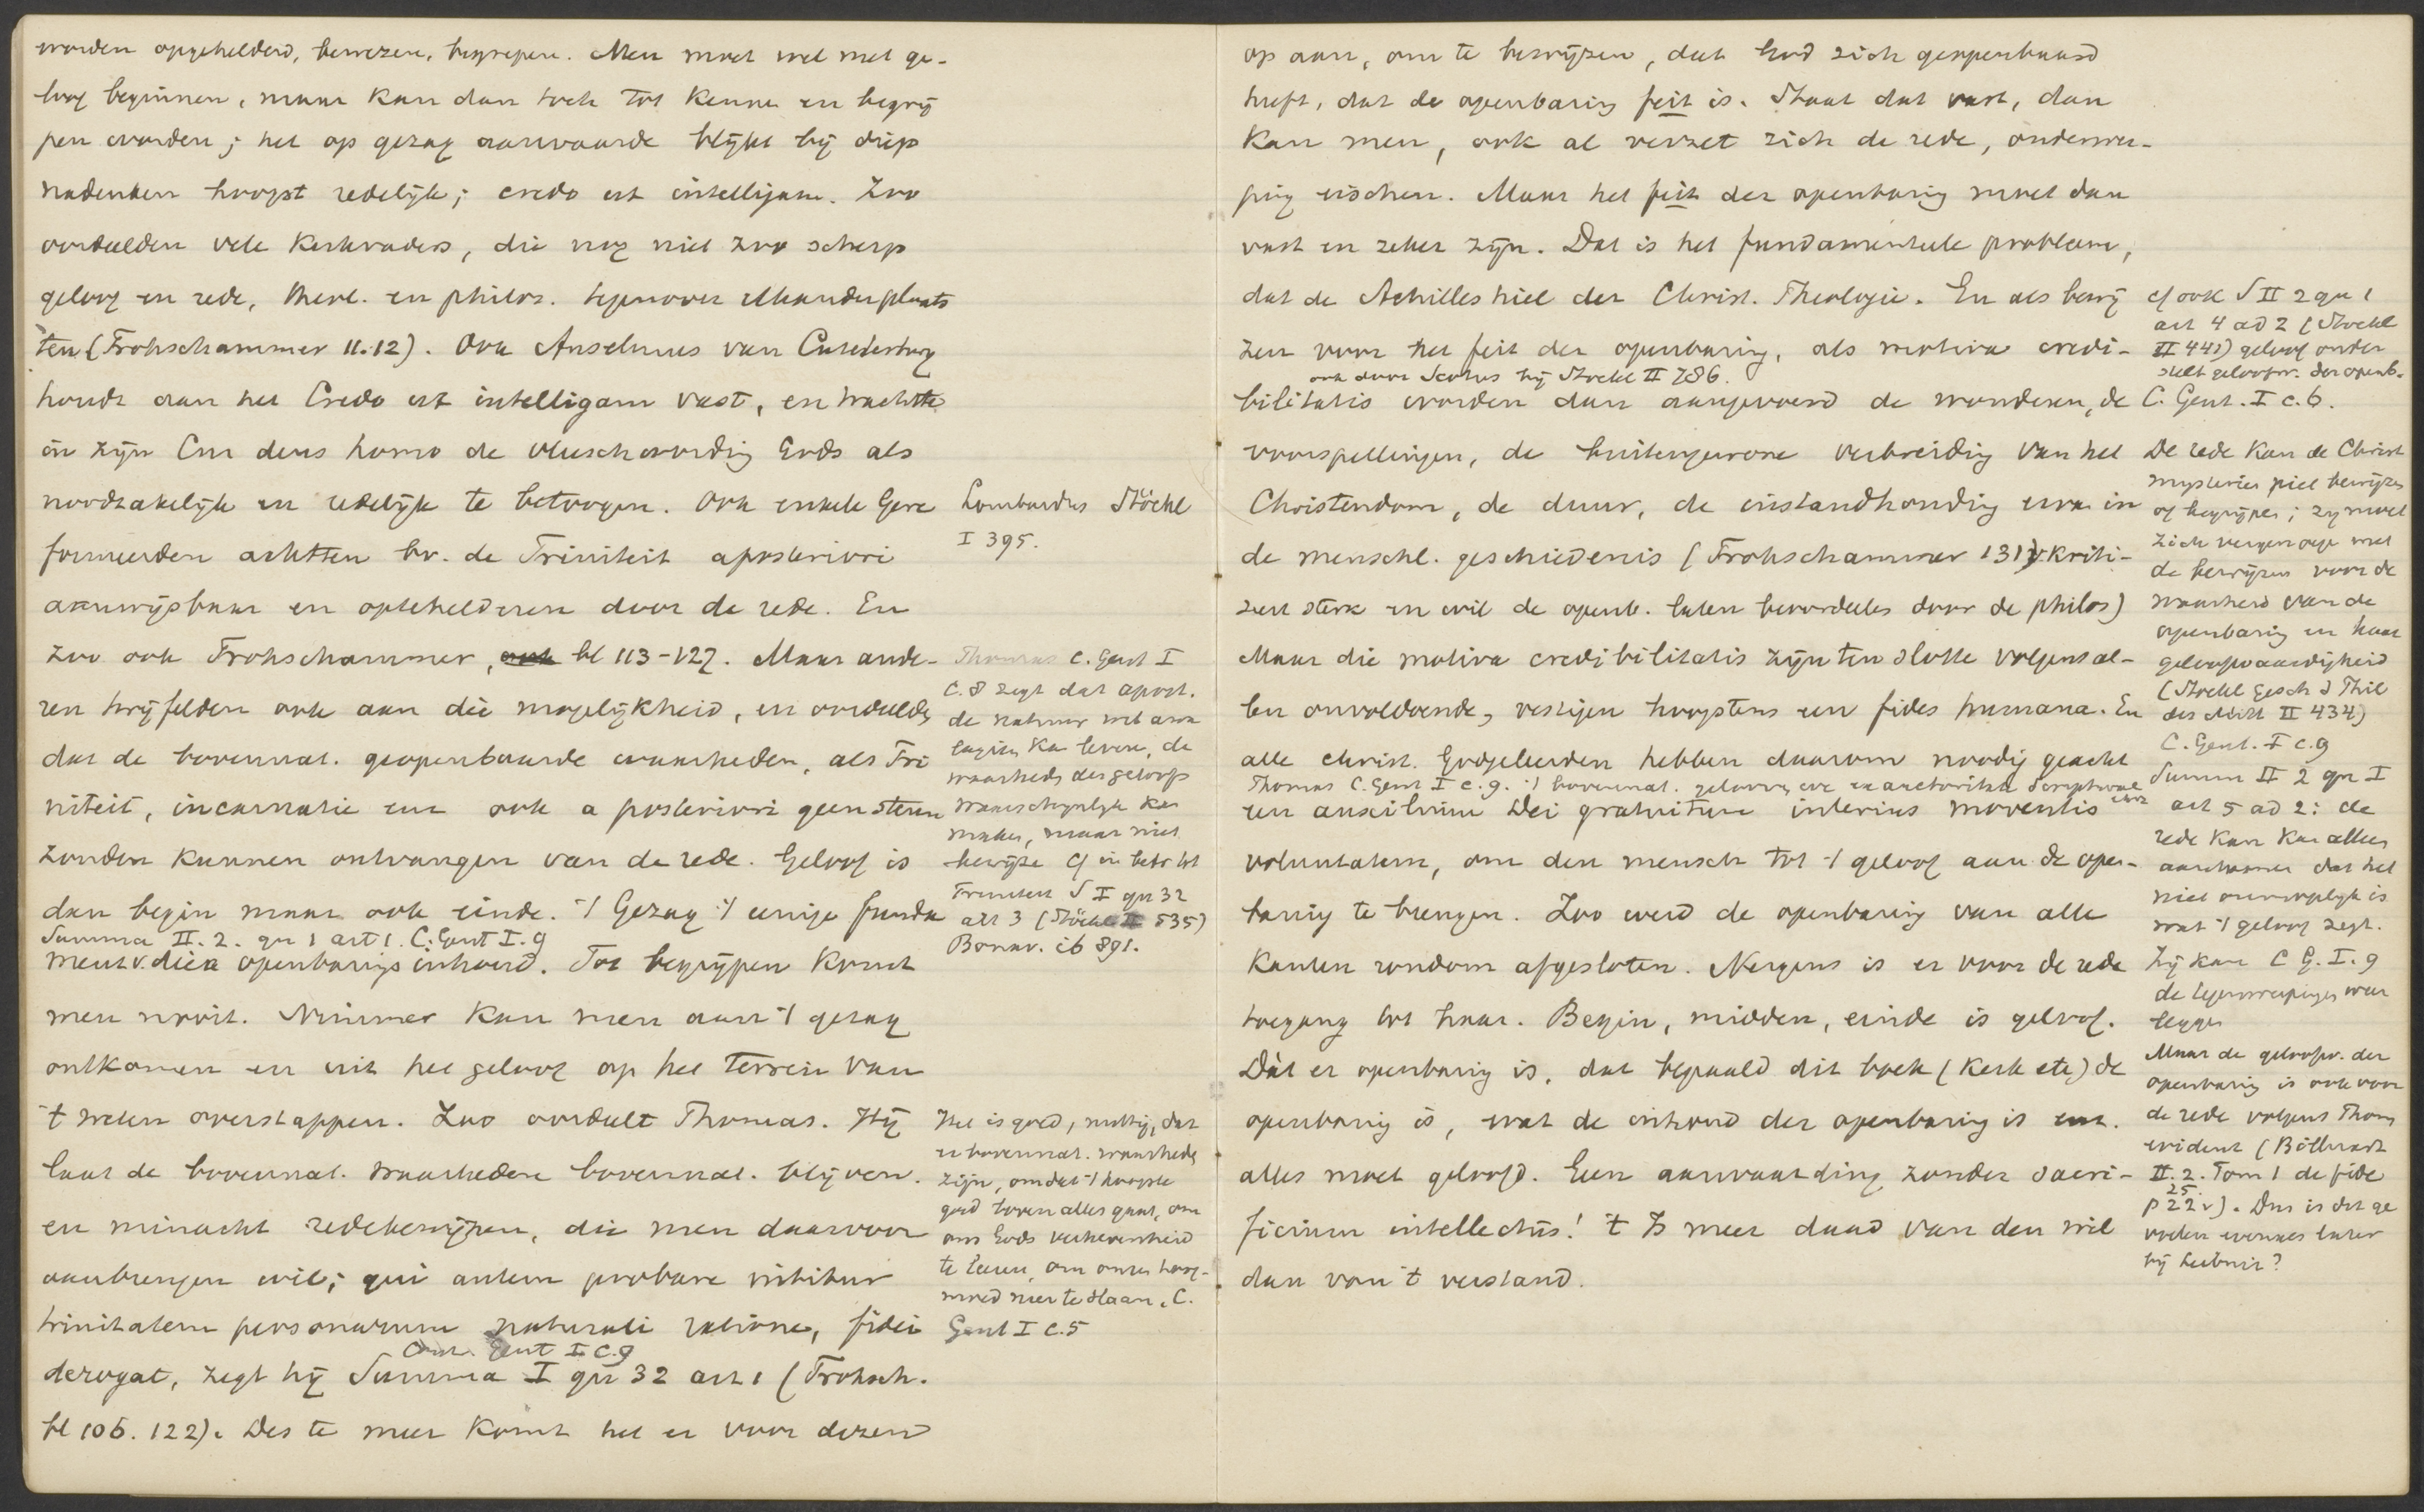 worden opgehelderd, bewezen, begrepen. Men moet wel met ge-
loof beginnen, maar kan dan toch tot kennen en begrij
pen worden; het op gezag aanvaarde blijkt bij diep
nadenken hoogst redelijk; credo ut intelligam. Zoo
oordeelden vele Kerkvaders, die nog niet zoo scherp
geloof en rede, theol. en philos. tegenover elkander plaats
ten (Frohschammer 11.12). Ook Anselmus van Canterbury
houdt aan het Credo ut intelligam vast, en trachtte
in zijn Cur deus homo de menschwording Gods als
noodzakelijk en redelijk te betoogen. Ook enkele Gere
formeerden achtten bv. de Triniteit aposteriori
aanwijsbaar en optehelderen door de rede. En
zoo ook Frohschammer, ook bl 113-127. Maar ande-
ren twijfelden ook aan die mogelijkheid, en oordeelden
dat de bovennat. geopenbaarde waarheden, als Tri
niteit, incarnatie enz ook a posteriori geen steun
zouden kunnen ontvangen van de rede. Geloof is
dan begin maar ook einde. 't Gezag 't eenige funda
Summa II. 2. qu 1 art 1. C. Gent I. 9
ment v. dien openbarings inhoud. Tot begrijpen komt
men nooit. Nimmer kan men aan 't gezag
ontkomen en uit het geloof op het terrein van
't weten overstappen. Zoo oordeelt Thomas. Hij
laat de bovennat. waarheden bovennat. blijven.
en minacht redebewijzen, die men daarvoor
aanbrengen wil; qui autem probare nititur
trinitatem personarum naturali ratione, fidei
Cont. Gent I. c. 9
derogat, zegt hij Summa I qu 32 art 1 (Frohsch.
bl 106. 122). Des te meer komt het er voor dezen
Lombardus Stöckl
I 395.
Thomas C. Gent I
C. 8 zegt dat apost.
de natuur wel ana
logien kan leveren, de
waarheden des geloofs
waarschijnlijk kan
maken, maar niet
bewijzen Cf in betr tot
Triniteit S I qu 32
art 3 (Stöckl II 535)
Bonav. ib 891.
Het is goed, nuttig, dat
er bovennat. waarheden
zijn, omdat 't hoogste
goed boven alles gaat, om
ons Gods verhevenheid
te leeren, om onzen hoog-
moed neer te slaan. C.
Gent I c.5
op aan, om te bewijzen, dat God zich geopenbaard
heeft, dat de openbaring feit is. Staat dat vast, dan
kan men, ook al verzet zich de rede, onderwer-
ping eischen. Maar het feit der openbaring moet dan
vast en zeker zijn. Dat is het fundamenteele probleem,
dat de Achilleshiel der Christ. Theologie. En als bewij
zen voor het feit der openbaring, als motiva credi-
ook door Scotus bij Stöckl II 786.
bilitatis worden dan aangevoerd de wonderen, de
voorspellingen, de buitengewone verbreiding van het
Christendom, de duur, de instandhouding ervan in
de menschl. geschiedenis (Frohschammer 131v kriti-
seert sterk en wil de openb. laten beoordeelen door de philos)
Maar die motiva credibilitatis zijn ten slotte volgens al-
len onvoldoende, vestigen hoogstens een fides humana. En
alle christ. Godgeleerden hebben daarom noodig geacht
Thomas C. Gent I c. 9. 't bovennat. gelooven we ex auctoritate Scripturae
een auxilium Dei gratuitum interius moventis
voluntatem, om den mensch tot 't geloof aan de open-
baring te brengen. Zoo werd de openbaring van alle
kanten rondom afgesloten. Nergens is er voor de rede
toegang tot haar. Begin, midden, einde is geloof.
Dàt er openbaring is, dat bepaald dit boek (Kerk etc) de
openbaring is, wat de inhoud der openbaring is enz.
alles moet geloofd. Een aanvaarding zonder sacri-
ficium intellectûs! 't Is meer daad van den wil
dan van 't verstand.
cf ook S II 2 qu 1
art 4 ad 2 (Stöckl
II 442) geloof onder
stelt geloofw. der openb.
C. Gent. I c. 6.
De rede kan de Christ
mysteriën niet bewijzen
of begrijpen; zij moet
zich vergenoegen met
de bewijzen voor de
waarheid van de
openbaring en haar
geloofwaardigheid
(Stöckl Gesch d Phil
des Mitt II 434)
C. Gent. I c. 9
Summ II 2 qu I
art 5 ad 2: de
rede kan alleen
aantoonen dat het
niet onmogelijk is
wat 't geloof zegt.
Zij kan C G. I. 9
de tegenwerpingen weer
leggen
Maar de geloofw. der
openbaring is ook voor
de rede volgens Thom
evident (Billuart
II. 2. Tom 1 de fide
25.
p 22v). Dus is dit ge
voelen evenals later
bij Leibniz?